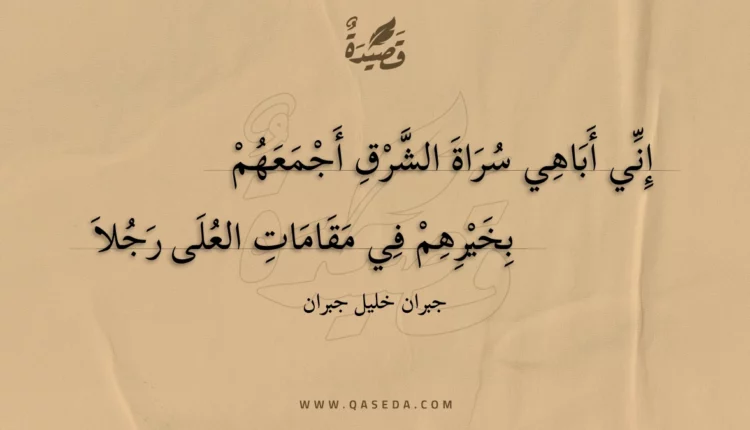 قَصِيدَةٌ
إِنِّي أَبَاهِي سُرَاةَ الشَّرْقِ أَجْمَعَهُمْ
بِخَيْرِهِمْ فِي مَقَامَاتِ العُلَى رَجُلاَ
جبران خليل جبران
WWW.QASEDA.COM